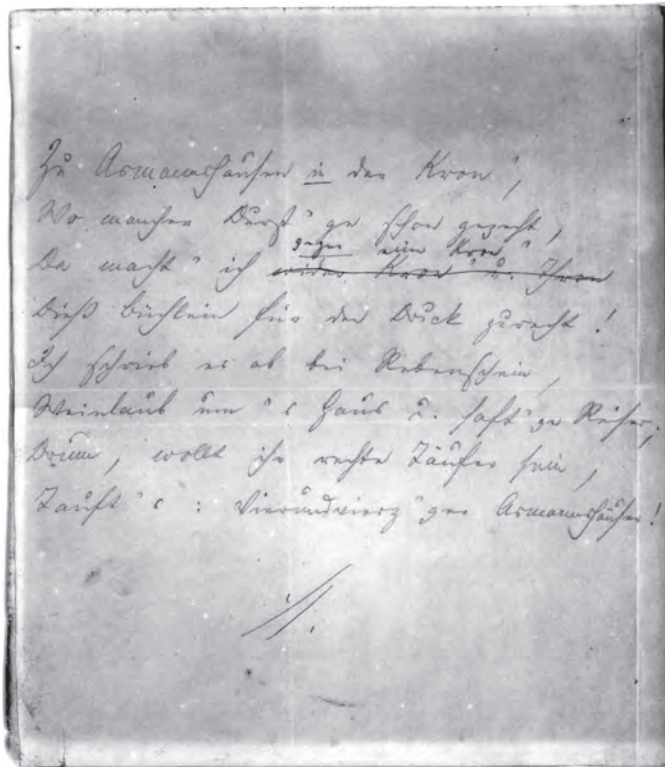 Zu Asmannshausen in der Kron',
Wo mancher Durst'ge schon gezecht,
gegen eine Kron'
Da macht' ich wider Kron' u. Thron
Dieß Büchlein für den Druck zurecht!
Ich schrieb es ab bei Rebenschein,
Weinlaub um's Haus u. saft'ge Reiser;
Drum, wollt ihr rechte Täufer sein,
Tauft's: Vierundvierz'ger Asmannshäuser!